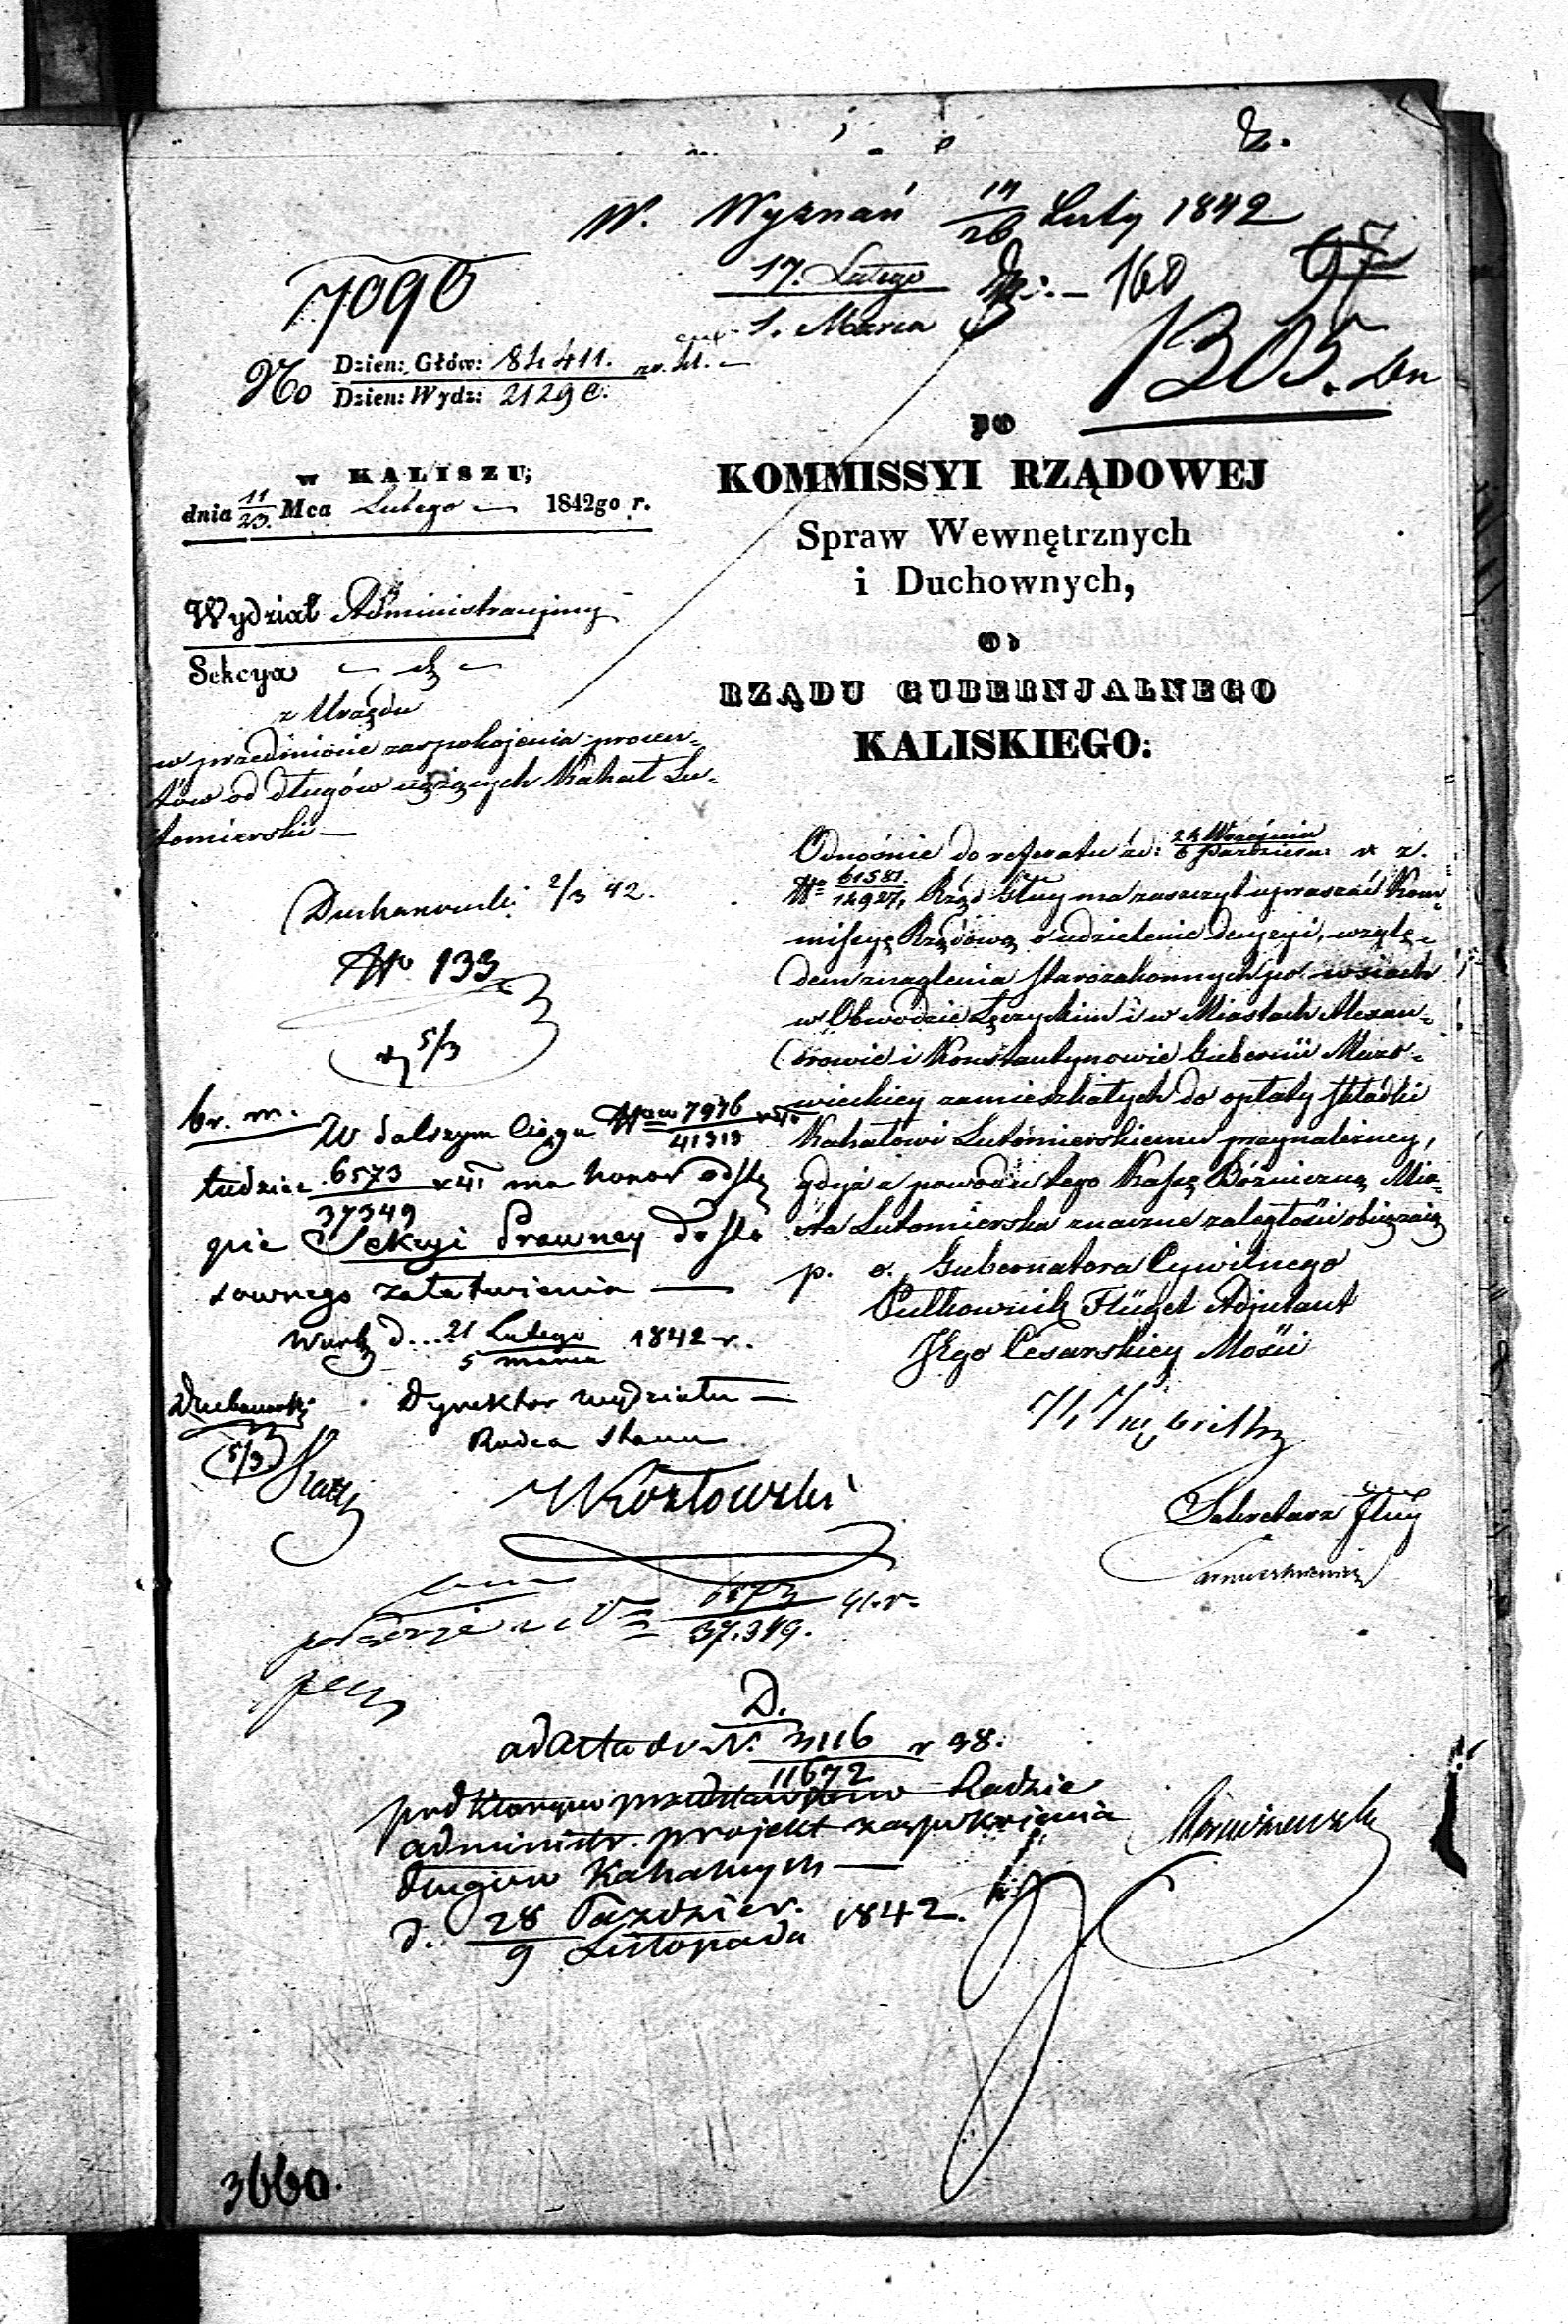 W. Wyznań 14/26 Luty 1842
17. Lutego
1. Marca
160
67
7090
1305.
No Dzien: Głów: 84411.
Dzien: Wydz: 21290.
w KALISZU;
dnia 11/23. Mca Lutego 1842go r.
Wydział Administracyjny
Sekcya
z Urzędu
w przedmiocie zaspokojenia procen-
tów od długów ciążących Kahał Lu-
tomierski
DO
KOMMISSYI RZĄDOWEJ
Spraw Wewnętrznych
i Duchownych,
OD
RZĄDU GUBERNJALNEGO
KALISKIEGO:
Odnośnie do referatu zd: 24 Września / 6 Paździer: r. z.
No 61581/14927, Rząd Głny ma zaszczyt upraszać Kom-
missyę Rządową o udzielenie decyzyi, wzglę-
dem znaglenia starozakonnych po wsiach
w Obwodzie Łęczyckim i w Miastach Alexan-
drowie i Konstantynowie Gubernii Mazo-
wieckiey zamieszkałych do opłaty składki
Kahałowi Lutomierskiemu przynależney,
gdyż z powodu tego Kassę Bóżniczną Mia-
sta Lutomierska znaczne zaległości obciążaią
p. o. Gubernatora Cywilnego
Pułkownik Flügel Adjutant
Jego Cesarskiey Mości
Sekretarz Jlny
2/3 42.
No 133
5/3
br. m.
W dalszym ciągu Nru 7976/41313
tudzież 6573/37349 r 41 ma honor odstą
pić Sekcyi Prawney do sto
sownego załatwienia
Warsz d. 21 Lutego / 5 marca 1842 r.
5/3
Dyrektor wydziału
Radca Stanu
Kozłowski
6573/37.349. 41. r.
D.
ad acta do N. 3116/11672 r 38.
pod którym przedstawiono Radzie
administr. projekt zaspokojenia
długów Kahalnych
d. 28 Paździer. / 9 Listopada 1842.
3660.